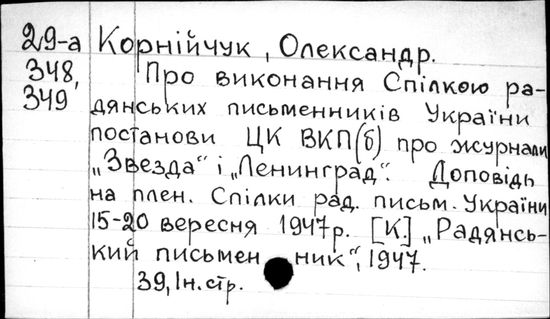 29-а Корнійчук, Олександр.
348, Про виконання Спілкою ра-
349 дянських письменників України
постанови ЦК ВКП(б) про журнали
„Звезда“ і „Ленинград“. Доповідь
на плен. Спілки рад. письм. України
15-20 вересня 1947р. [К.] „Радянсь-
кий письменник“, 1947.
39, Ін. стр.